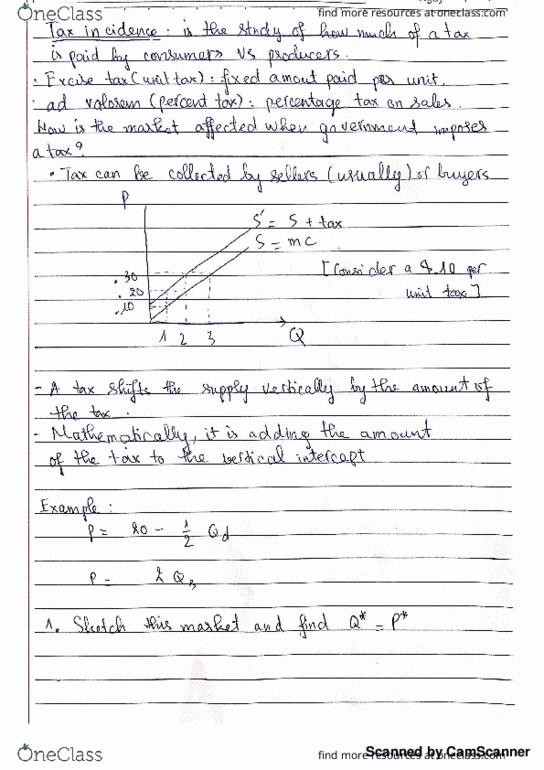 OneClass
find more resources at oneclass.com
Tax incidence : is the study of how much of a tax
is paid by consumers vs producers.
. Excise tax (unit tax) : fixed amout paid per unit.
. ad valorem (percent tax) : percentage tax on sales.
How is the market affected when government imposes
a tax?
• Tax can be collected by sellers (usually) of buyers
P
S' = S + tax
S = mc
[Consider a $.10 per
unit tax]
.30
.20
.10
1 2 3 Q
- A tax shifts the supply vertically by the amount of
the tax.
- Mathematically, it is adding the amount
of the tax to the vertical intercept
Example :
P = 20 - 1/2 Qd
P = 2 Qs
1. Sketch this market and find Q* = P*
OneClass
find more resources at oneclass.com
Scanned by CamScanner